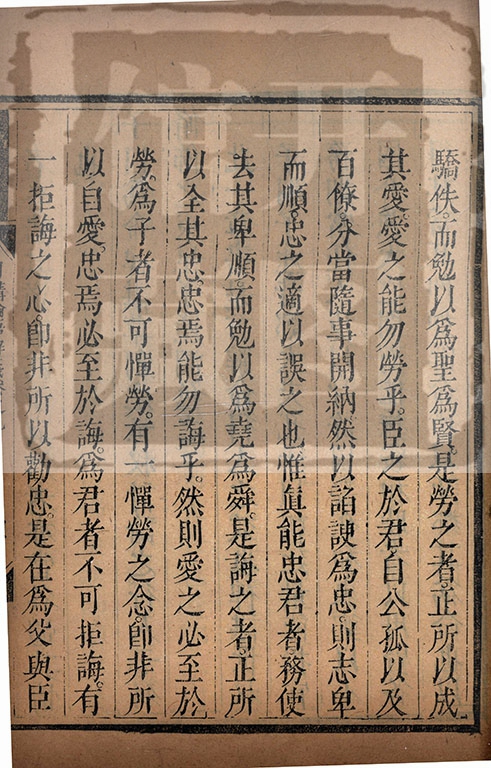 驕佚。而勉以爲聖爲賢。是勞之者。正所以成
其愛。愛之能勿勞乎。臣之於君。自公孤以及
百僚。分當隨事開納。然以諂諛爲忠。則志卑
而順。忠之適以誤之也。惟眞能忠君者。務使
去其卑順。而勉以爲堯爲舜。是誨之者。正所
以全其忠。忠焉能勿誨乎。然則愛之必至於
勞。爲子者不可憚勞。有一憚勞之念。卽非所
以自愛。忠焉必至於誨。爲君者不可拒誨。有
一拒誨之心。卽非所以勸忠。是在爲父與臣